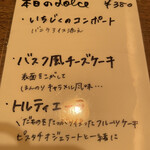 本日のdolce ¥380
・いちじくのコンポート
バニラアイス添え
・バスク風チーズケーキ
表面をこがして
ほんのりキャラメル風味…
・トルティエ
ピスタチオジェラートと一緒に